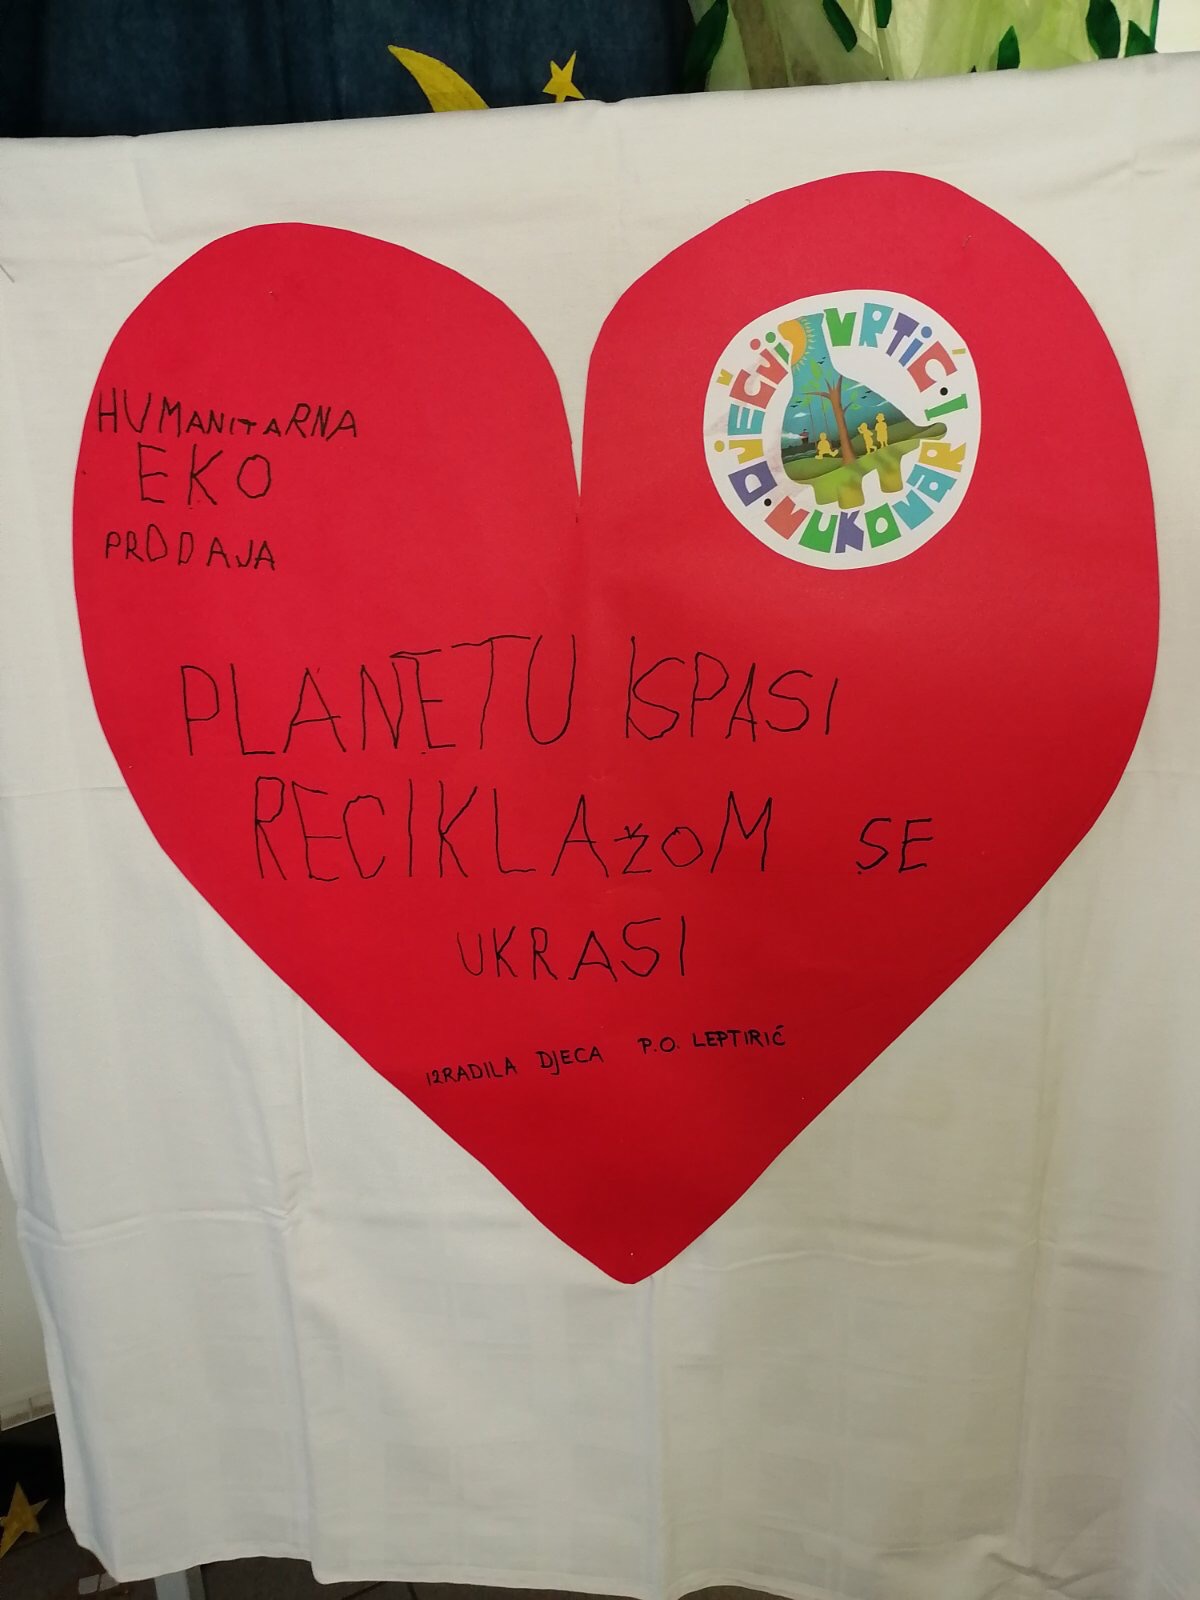 DJEČJI VRTIĆ • I
• VUKOVAR
HUMANITARNA
EKO
PRODAJA
PLANETU ISPASI
RECIKLAŽOM SE
UKRASI
IZRADILA DJECA P.O. LEPTIRIĆ